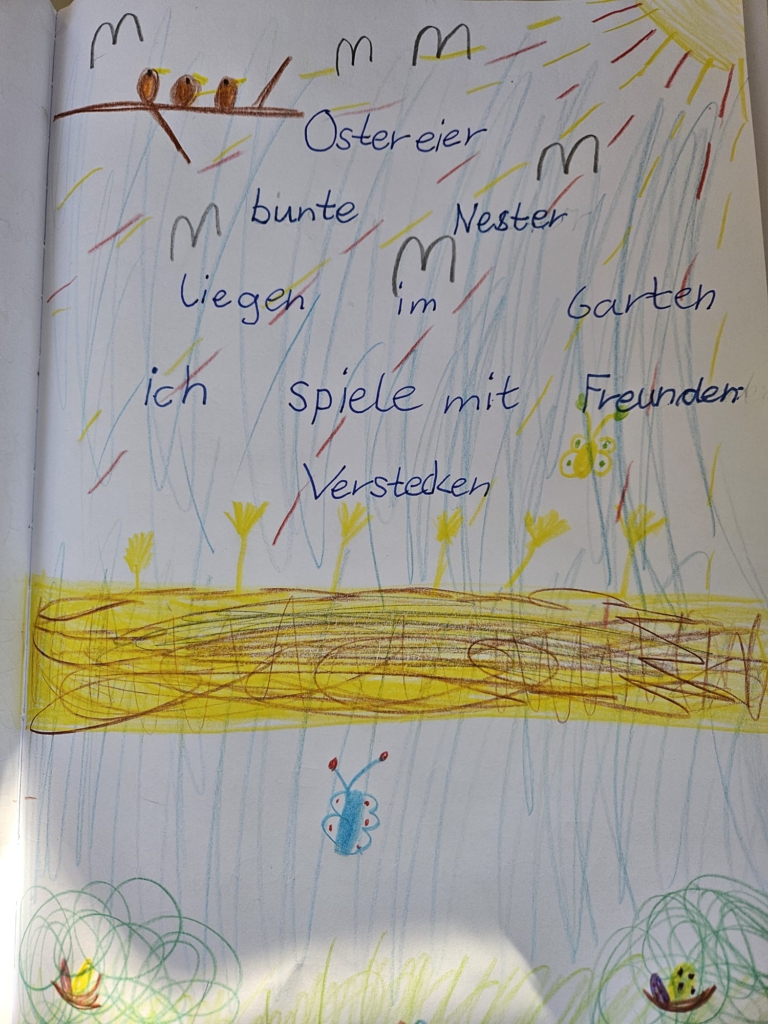 Ostereier
bunte Nester
liegen im Garten
ich spiele mit Freunden
Verstecken